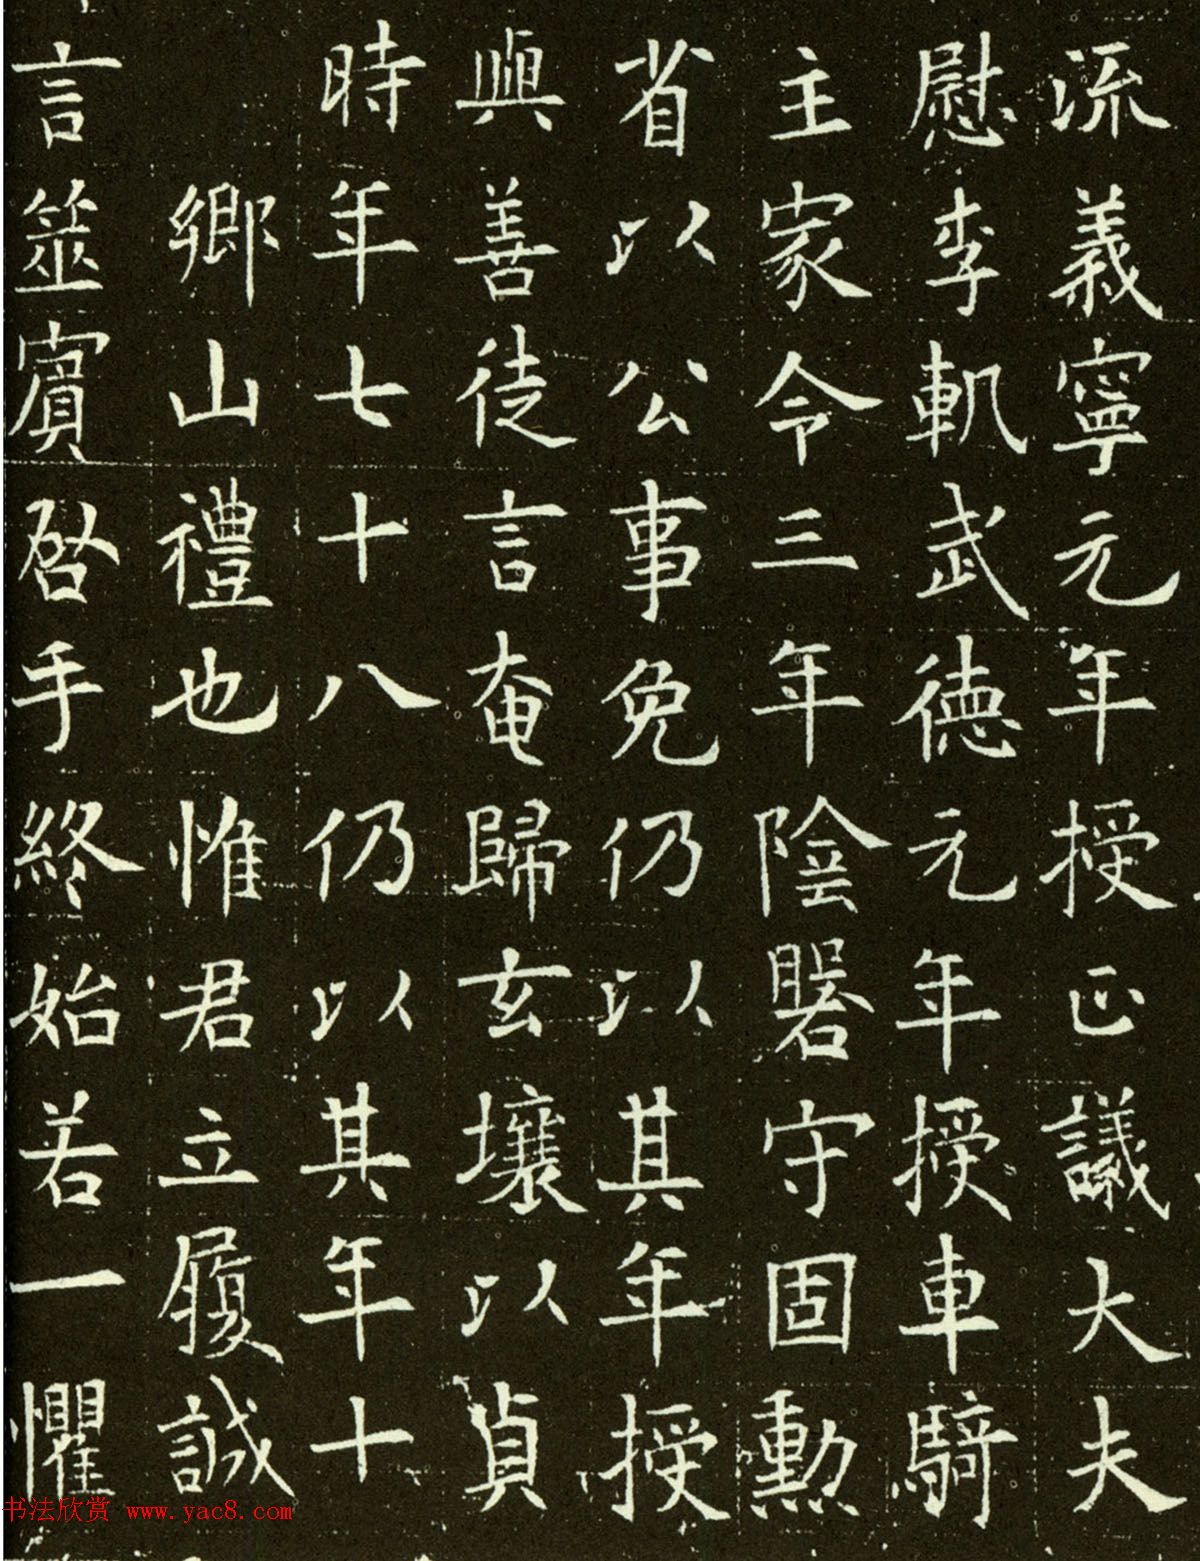 流義寧元年授正議大夫
慰李軌武德元年授車騎
主家令三年陰晷守固勲
省以公事免仍以其年授
與善徒言奄歸玄壤以貞
時年七十八仍以其年十
鄉山禮也惟君立履誠
言筮賓啓手終始若一懼
书法欣赏 www.yac8.com